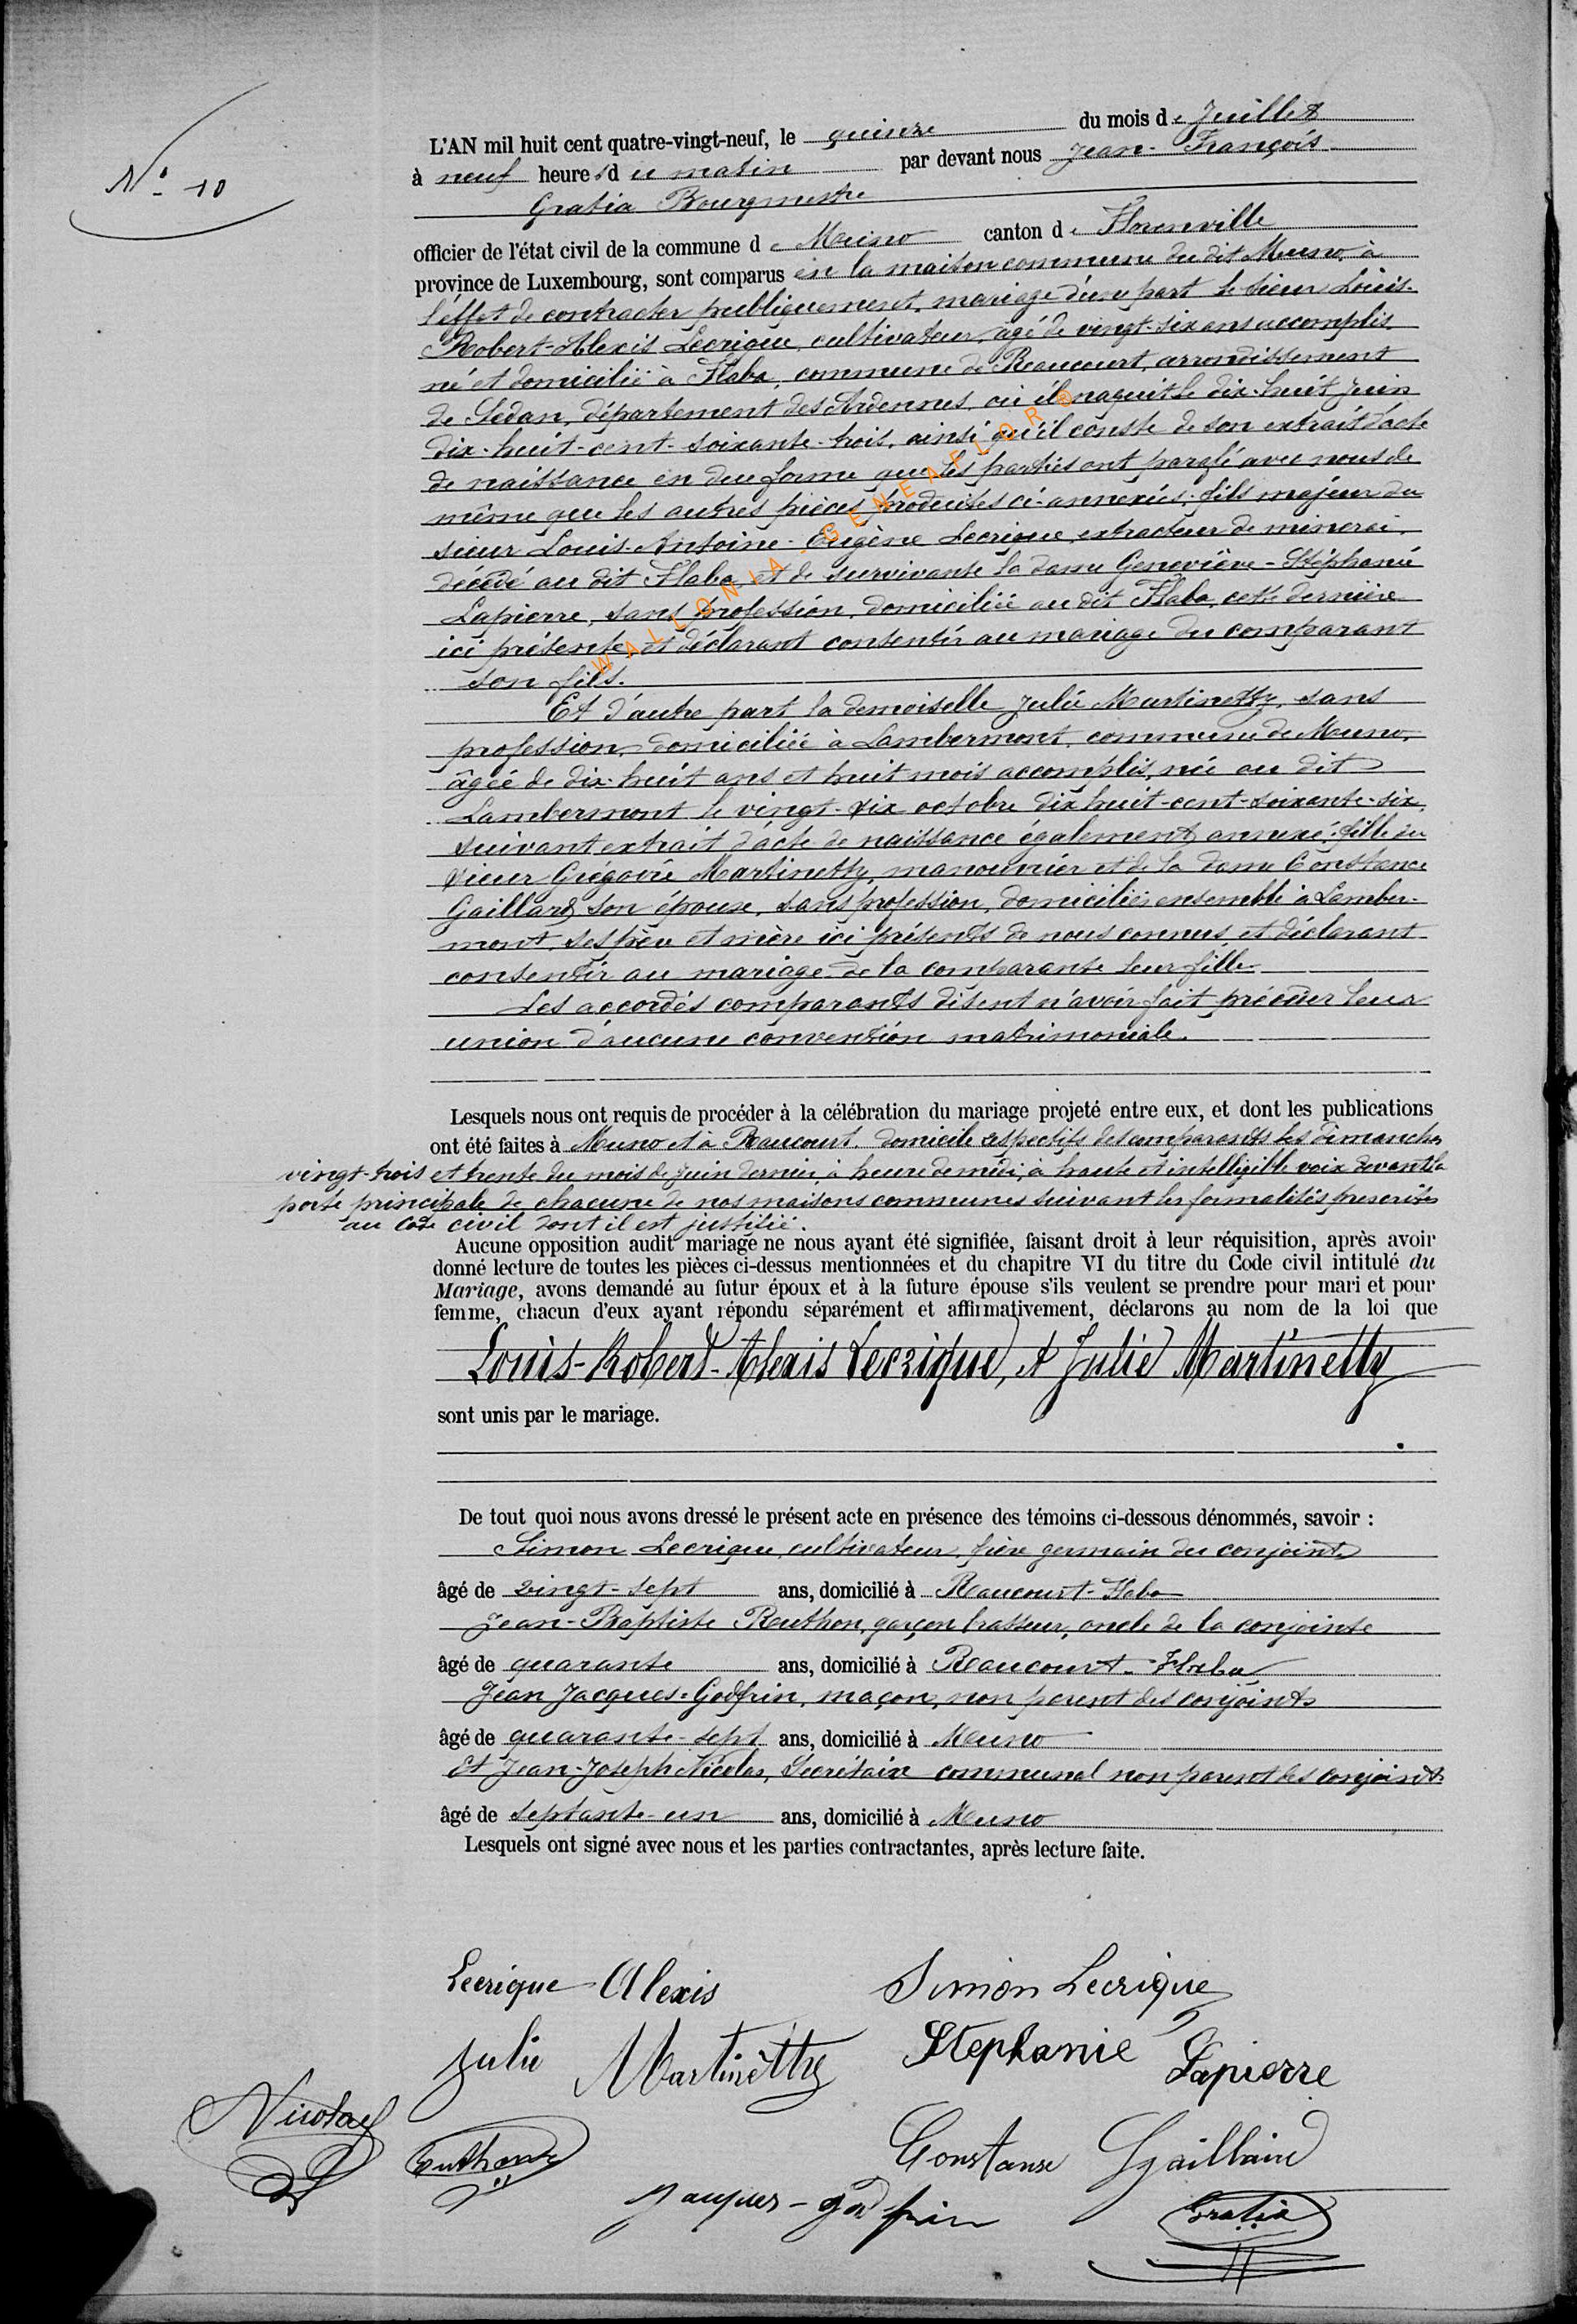 N° 10
L'AN mil huit cent quatre-vingt-neuf, le quinze du mois de Juillet
à neuf heures du matin par devant nous Jean-François
Gratia Bourgmestre
officier de l'état civil de la commune de Muno canton de Florenville
province de Luxembourg, sont comparus en la maison commune du dit Muno, à
l'effet de contracter publiquement mariage d'une part le sieur Louis-
Robert-Alexis Lecrique, cultivateur, agé de vingt-six ans accomplis,
né et domicilié à Flaba, commune de Raucourt, arrondissement
de Sedan, département des Ardennes, où il naquit le dix-huit Juin
dix-huit-cent-soixante-trois, ainsi qu'il conste de son extrait d'acte
de naissance en due forme que les parties ont parafé avec nous de
même que les autres pièces produites ci-annexées; fils majeur du
sieur Louis-Antoine-Eugène Lecrique, extracteur de minerai,
décédé au dit Flaba, et de survivante la dame Geneviève-Stéphanie
Lapierre, sans profession, domiciliée au dit Flaba, cette dernière
ici présente et déclarant consentir au mariage du comparant
son fils.
Et d'autre part la demoiselle Julie Martinetty, sans
profession, domiciliée à Lambermont, commune de Muno,
âgée de dix-huit ans et huit mois accomplis, née au dit
Lambermont le vingt-six octobre dix huit-cent-soixante-six,
suivant extrait d'acte de naissance également annexé; fille du
sieur Grégoire Martinetty, manouvrier et de la dame Constance
Gaillard son épouse, sans profession, domiciliés ensemble à Lamber-
mont, ses père et mère ici présents de nous connus et déclarant
consentir au mariage de la comparante leur fille.
Les accordés comparants disent n'avoir fait précéder leur
union d'aucune convention matrimoniale.
Lesquels nous ont requis de procéder à la célébration du mariage projeté entre eux, et dont les publications
ont été faites à Muno et à Raucourt, domicile respectifs des comparants les dimanches
vingt-trois et trente du mois de Juin dernier, à heure de midi, à haute et intelligible voix devant la
porte principale de chacune de nos maisons communes suivant les formalités prescrites
au Code civil dont il est justifié.
Aucune opposition audit mariage ne nous ayant été signifiée, faisant droit à leur réquisition, après avoir
donné lecture de toutes les pièces ci-dessus mentionnées et du chapitre VI du titre du Code civil intitulé du
Mariage, avons demandé au futur époux et à la future épouse s'ils veulent se prendre pour mari et pour
femme, chacun d'eux ayant répondu séparément et affirmativement, déclarons au nom de la loi que
Louis-Robert-Alexis Lecrique, et Julie Martinetty
sont unis par le mariage.
De tout quoi nous avons dressé le présent acte en présence des témoins ci-dessous dénommés, savoir :
Simon Lecrique, cultivateur, frère germain du conjoint
âgé de vingt-sept ans, domicilié à Raucourt-Flaba
Jean-Baptiste Routhon, garçon brasseur, oncle de la conjointe
âgé de quarante ans, domicilié à Raucourt-Flaba
Jean Jacques-Godfrin, maçon, non parent des conjoints
âgé de quarante-sept ans, domicilié à Muno
Et Jean-Joseph Nicolas, Secrétaire communal non parent des conjoints
âgé de septante-un ans, domicilié à Muno
Lesquels ont signé avec nous et les parties contractantes, après lecture faite.
Lecrique Alexis Simon Lecrique
Julie Martinetty Stephanie Lapierre
Nicolas Constance Gaillaird
Jacques-Godfrin Gratia
WALLONIA-GENEAFLORE